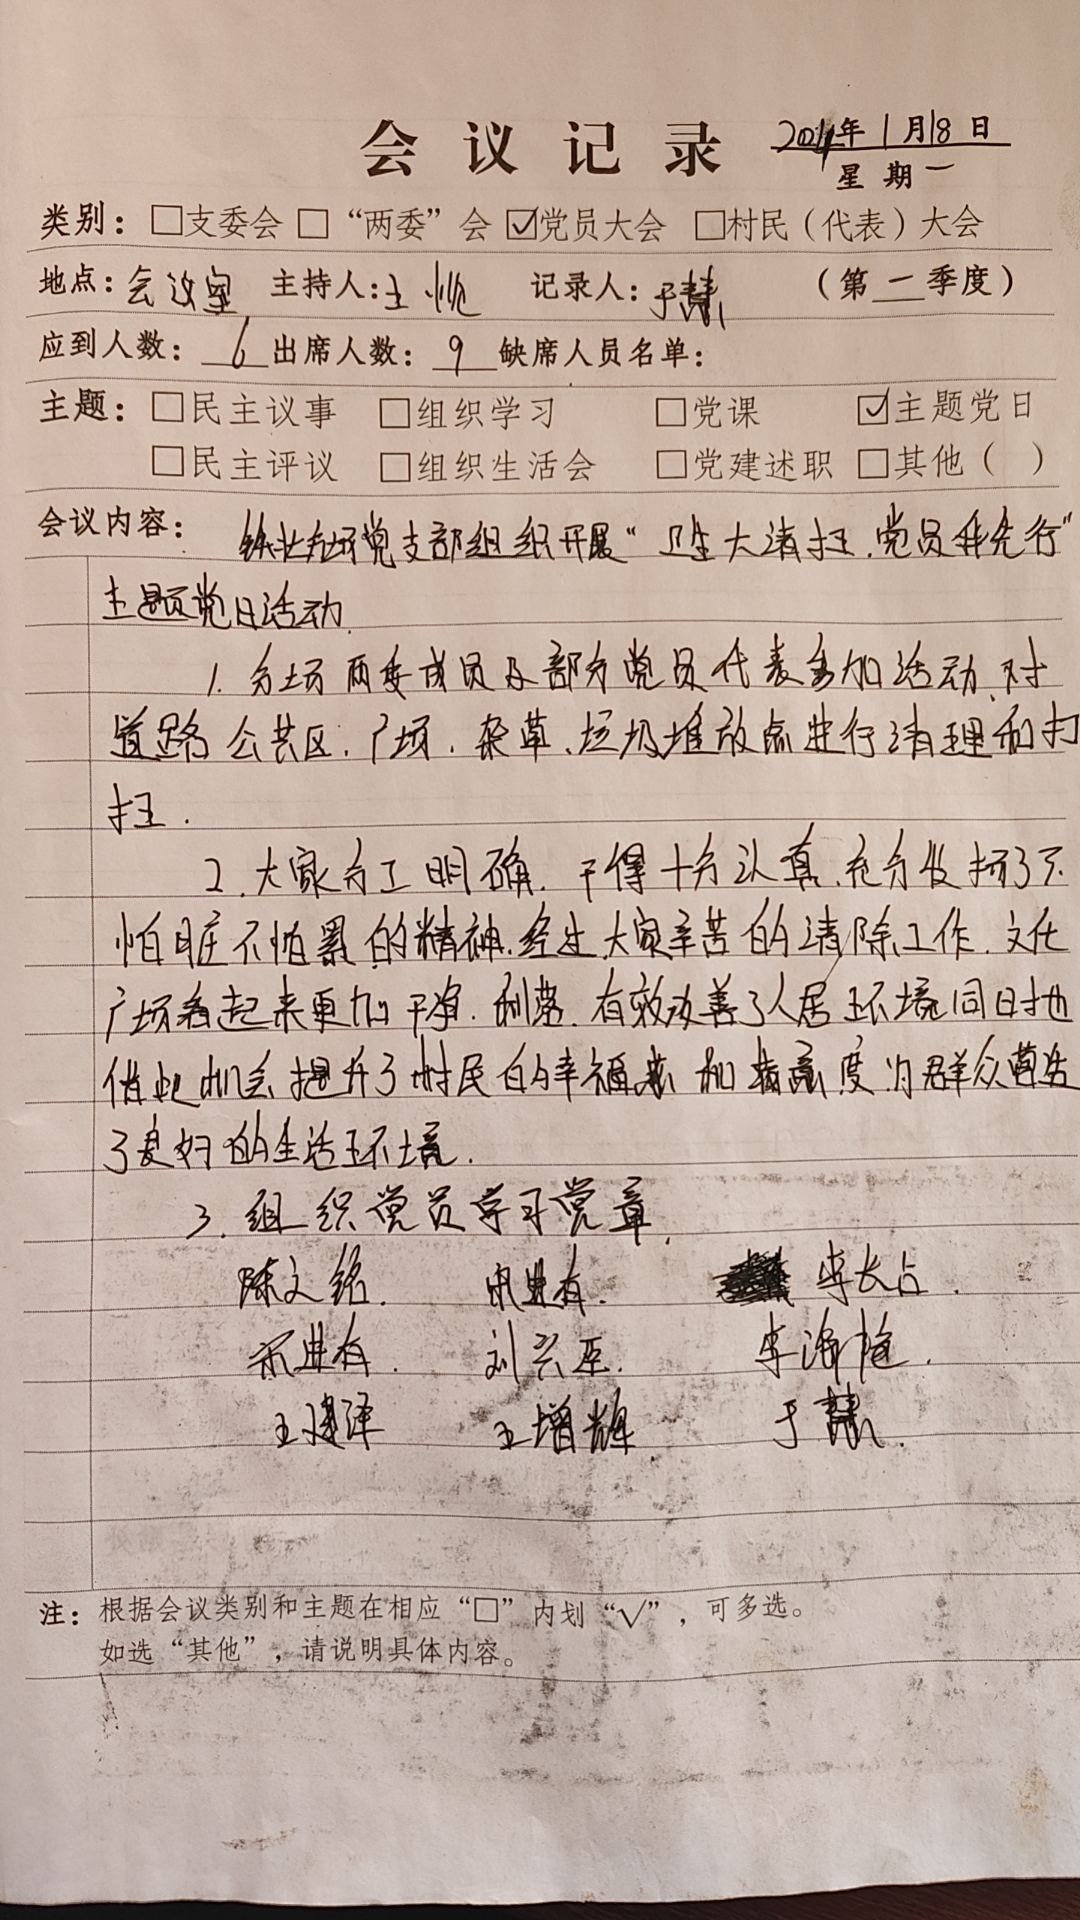 会议记录 202 年1月18日
星期一
类别：□支委会 □“两委”会 ☑党员大会 □村民（代表）大会
地点：会议室 主持人：王 记录人：于慧 （第一季度）
应到人数：6 出席人数：9 缺席人员名单：
主题：□民主议事 □组织学习 □党课 ☑主题党日
□民主评议 □组织生活会 □党建述职 □其他（ ）
会议内容： 场党支部组织开展“卫生大清扫，党员我先行”
主题党日活动.
1. 分场两委成员及部分党员代表参加活动,对
道路、公共区、广场、杂草、垃圾堆放点进行清理和打
扫.
2.大家分工明确、干得十分认真,充分发扬了不
怕脏不怕累的精神.经过大家辛苦的清除工作,文化
广场看起来更加干净、利落.有效改善了人居环境同时也
借此机会提升了村民的幸福感和满意度为群众营造
了良好的生活环境.
3.组织党员学习党章.
陈文铭. 业有. 李长占.
宋业有. 刘兴 . 李海 .
王建泽 王增辉 于慧.
注：根据会议类别和主题在相应“□”内划“√”，可多选。
如选“其他”，请说明具体内容。